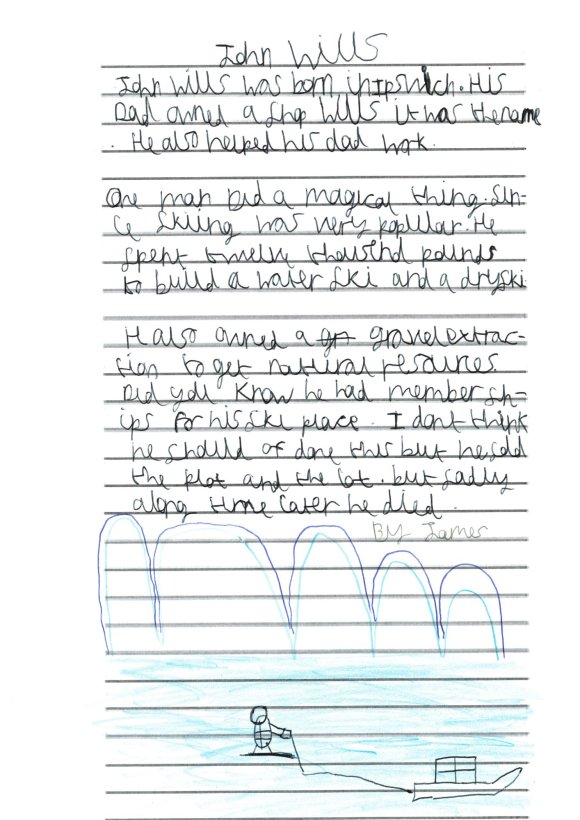 John Wills
John Wills was born in ipswich. His
Dad owned a shop Wills it was the name
. He also helped his dad work.
One man Did a magical thing. Sin-
ce skiing was very popular. He
spent twelve thousend pounds
to build a water ski and a dryski
H also owned a gravel extrac-
tion to get natural resources.
Did you know he had membersh-
ips for his ski place. I dont think
he should of done this but he sold
the plot and the lot. but sadly
along time later he died.
By James